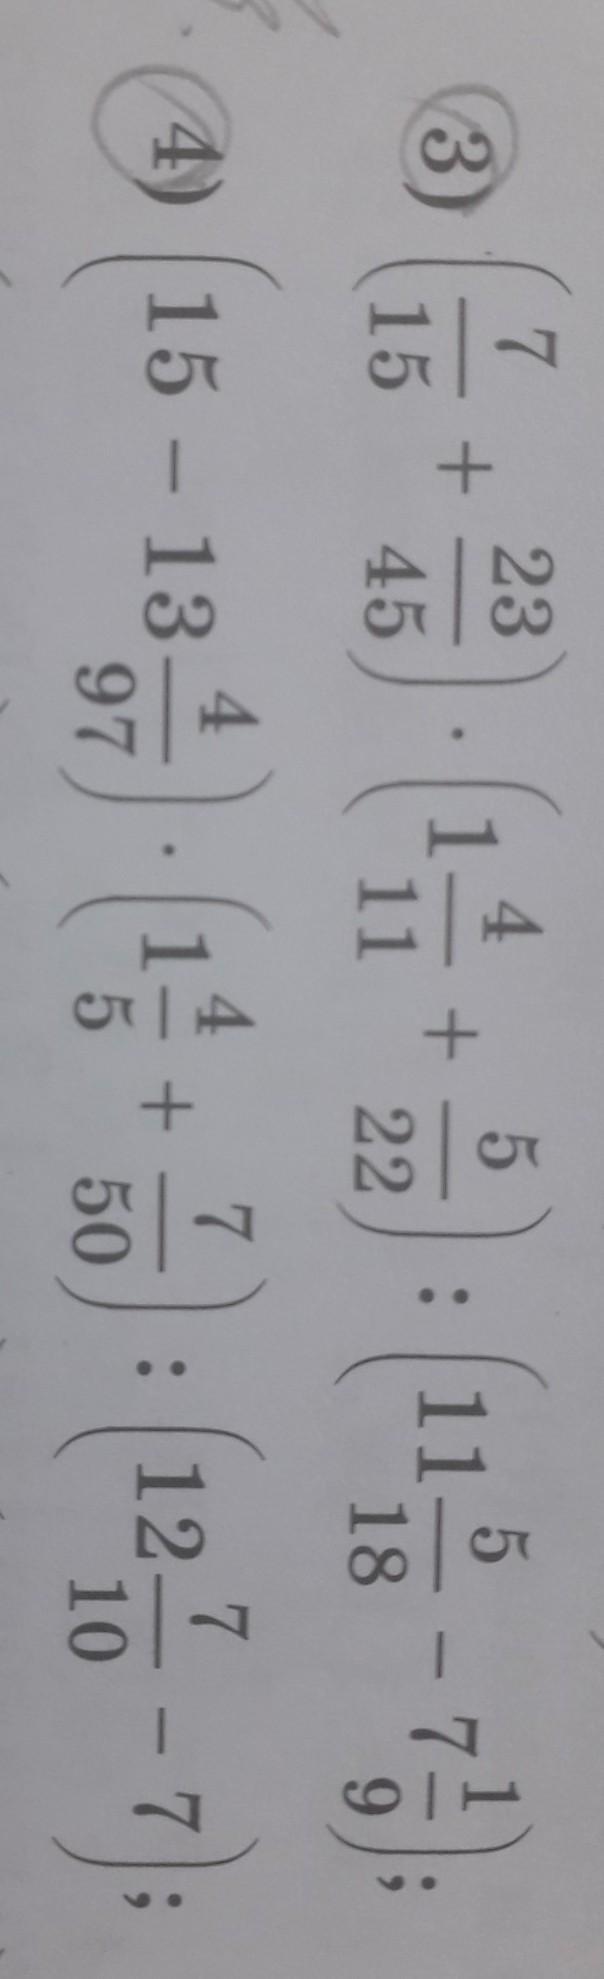 3) (7/15 + 23/45) · (1 4/11 + 5/22) : (11 5/18 − 7 1/9);
4) (15 − 13 4/97) · (1 4/5 + 7/50) : (12 7/10 − 7);